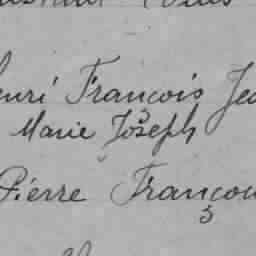 Henri François Je
Marie Joseph
Pierre Françou